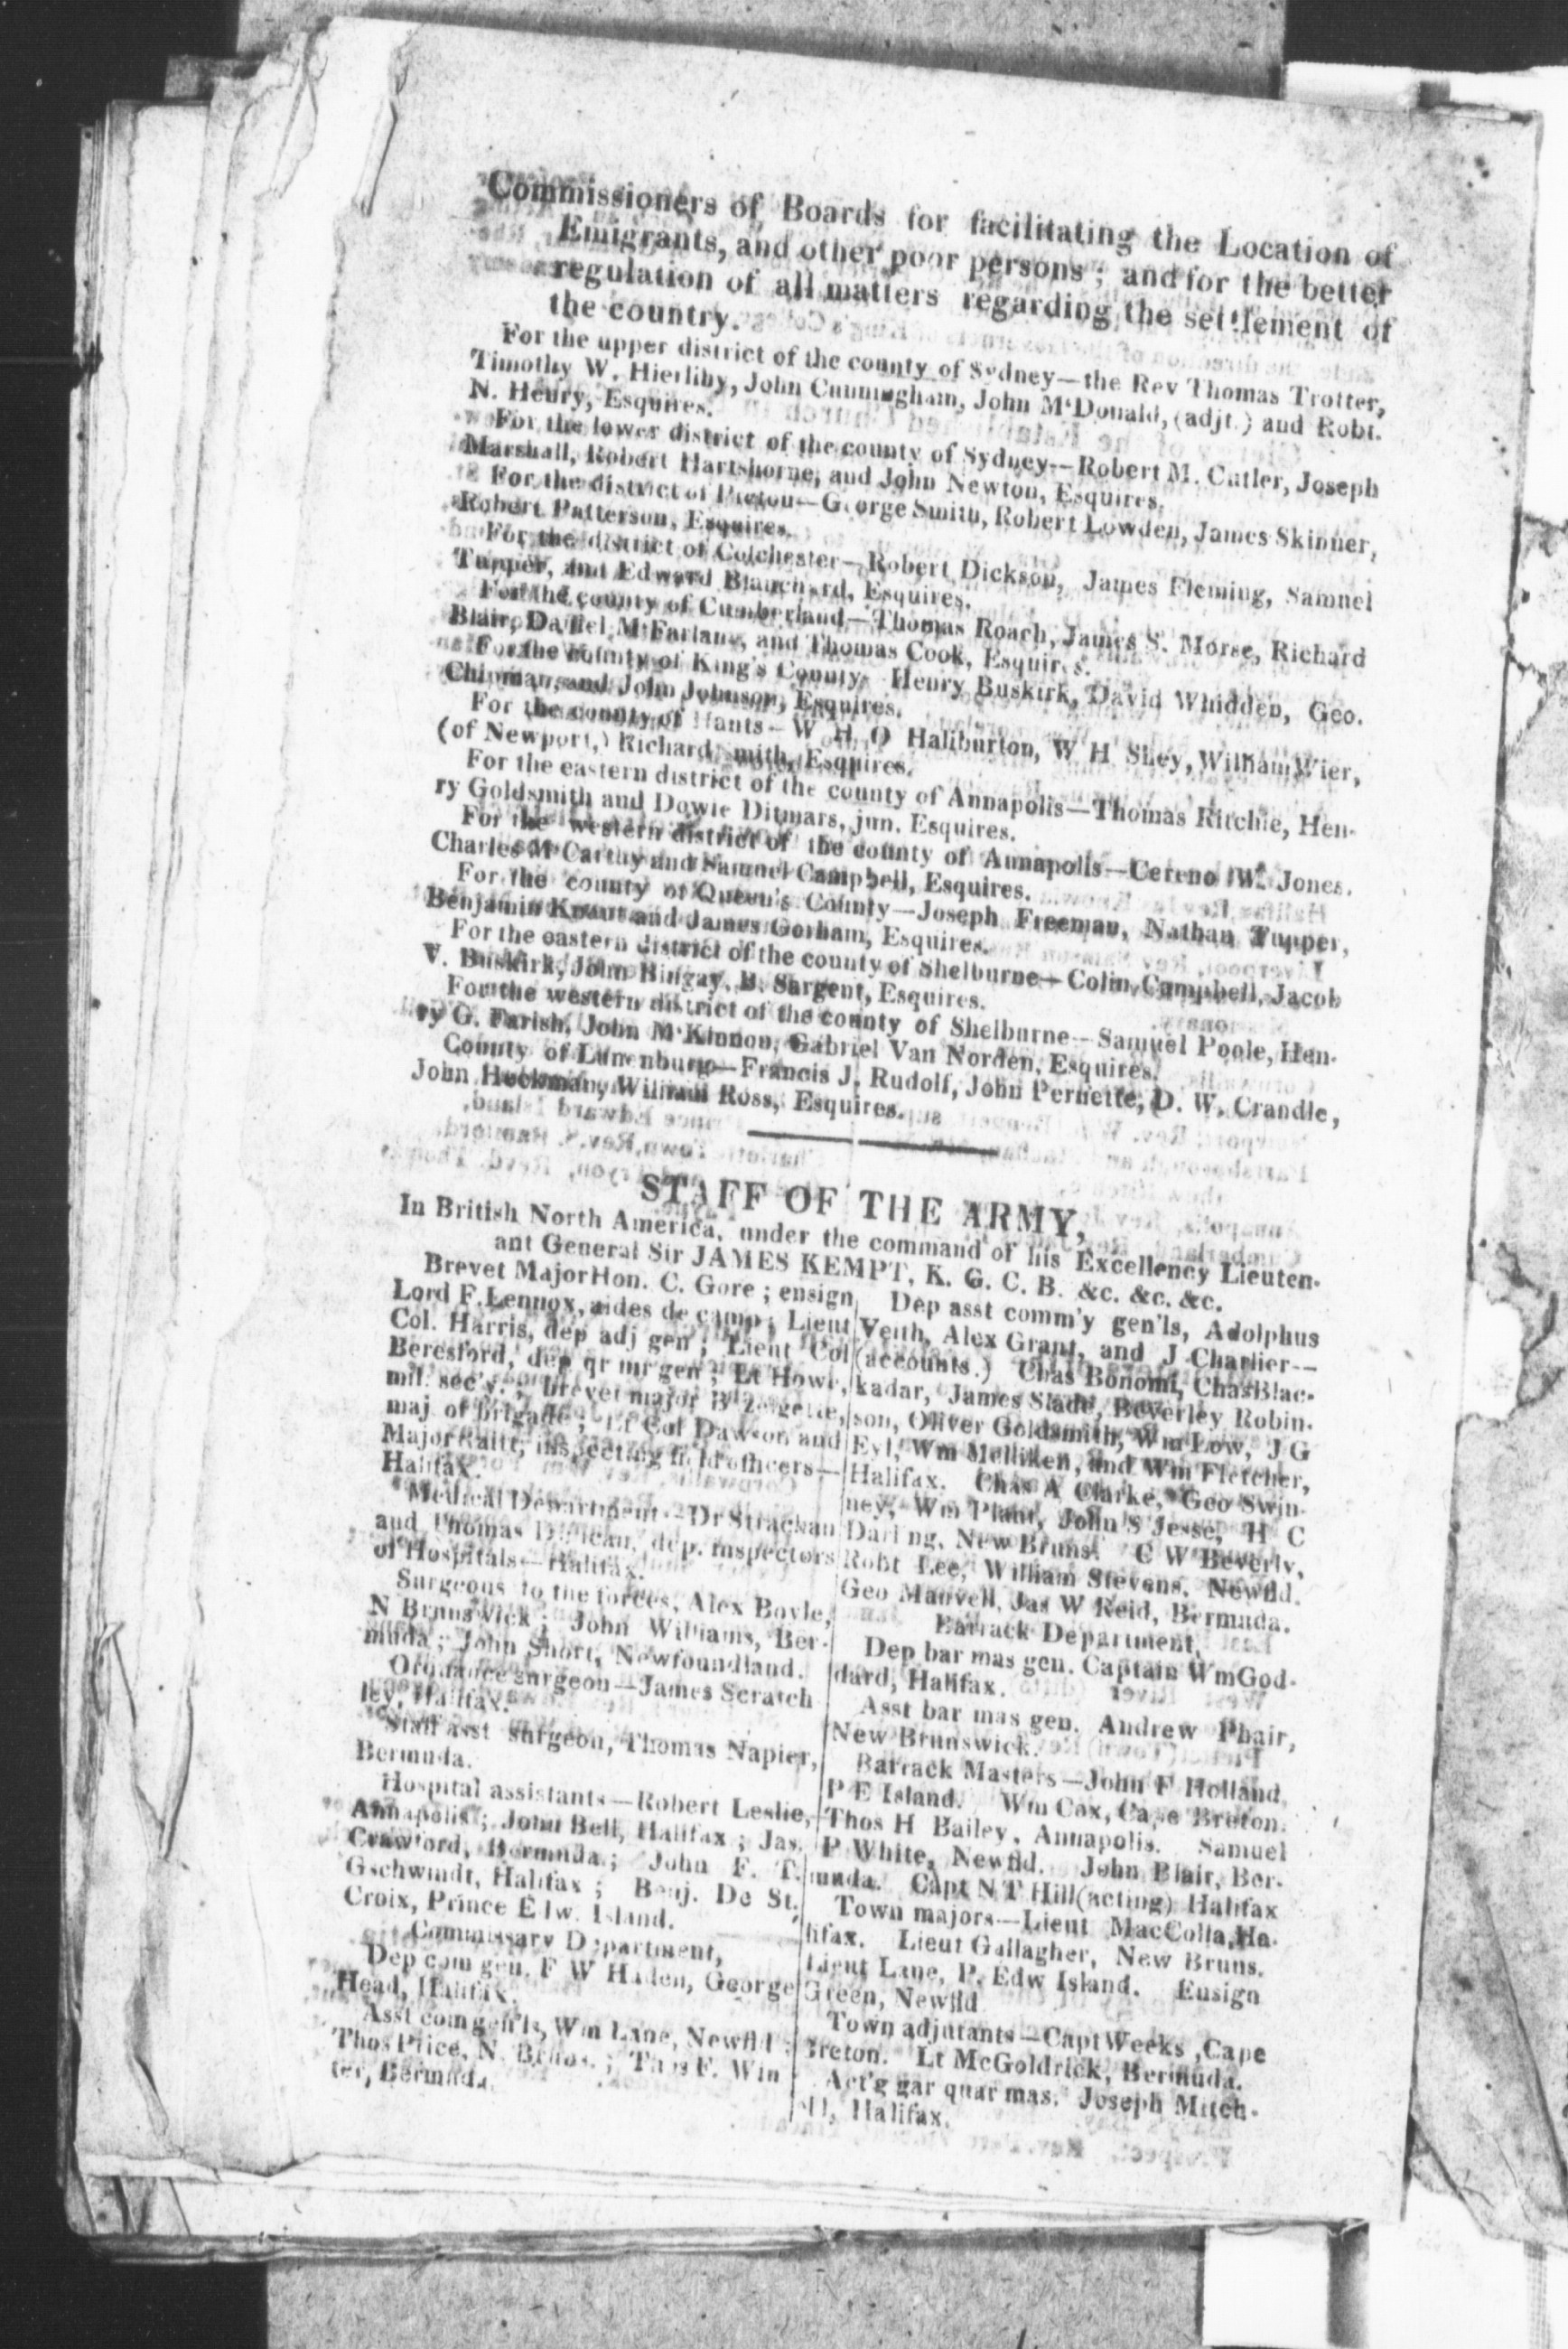 Commissioners of Boards for facilitating the Location of
Emigrants, and other poor persons ; and for the better
regulation of all matters regarding the settlement of
the country.
For the upper district of the county of Sydney—the Rev Thomas Trotter,
Timothy W. Hierlihy, John Cunningham, John M'Donald, (adjt.) and Robt.
N. Henry, Esquires.
For the lower district of the county of Sydney—Robert M. Cutler, Joseph
Marshall, Robert Hartshorne, and John Newton, Esquires.
For the district of Pictou—George Smith, Robert Lowden, James Skinner,
Robert Patterson, Esquires.
For the district of Colchester—Robert Dickson, James Fleming, Samuel
Tupper, and Edward Blanchard, Esquires.
For the county of Cumberland—Thomas Roach, James S. Morse, Richard
Blair, Daniel M'Farlane, and Thomas Cook, Esquires.
For the county of King's County Henry Buskirk, David Whidden, Geo.
Chipman, and John Johnson, Esquires.
For the county of Hants—W H O Haliburton, W H Shey, William Wier,
(of Newport,) Richard Smith, Esquires.
For the eastern district of the county of Annapolis—Thomas Ritchie, Hen-
ry Goldsmith and Dowie Ditmars, jun. Esquires.
For the western district of the county of Annapolis—Cereno W. Jones,
Charles M'Carthy and Samuel Campbell, Esquires.
For the county of Queen's County—Joseph Freeman, Nathan Tupper,
Benjamin Knaut and James Gorham, Esquires.
For the eastern district of the county of Shelburne—Colin Campbell, Jacob
V. Buskirk, John Bingay, B. Sargent, Esquires.
For the western district of the county of Shelburne—Samuel Poole, Hen-
ry G. Farish, John M'Kinnon, Gabriel Van Norden, Esquires.
County of Lunenburg—Francis J. Rudolf, John Pernette, D. W. Crandle,
John Heckman, William Ross, Esquires.
STAFF OF THE ARMY,
In British North America, under the command of his Excellency Lieuten-
ant General Sir JAMES KEMPT, K. G. C. B. &c. &c. &c.
Brevet Major Hon. C. Gore ; ensign
Lord F. Lennox, aides de camp ; Lieut
Col. Harris, dep adj gen ; Lieut Col
Beresford, dep qr mr gen ; Lt Howe,
mil. sec'y. ; brevet major
maj of brigade ; Lt Col Dawson and
Major Raitt, inspecting field officers—
Halifax.
Medical Department—Dr Strachan
and Thomas dep. inspectors
of Hospitals—Halifax.
Surgeons to the forces, Alex Boyle,
N Brunswick ; John Williams, Ber-
muda ; John Short, Newfoundland.
Ordnance surgeon—James Scratch
ley, Halifax.
Staff asst surgeon, Thomas Napier,
Bermuda.
Hospital assistants—Robert Leslie,
Annapolis ; John Bell, Halifax ; Jas.
Crawford, Bermuda ; John F. T.
Gschwindt, Halifax ; Benj. De St.
Croix, Prince Edw. Island.
Commissary Department,
Dep com gen. F W Haden, George
Head, Halifax.
Asst com gen'ls, Wm Lane, Newfld ;
Thos Price, N. Bruns. ; Thos F. Win
ter, Bermuda.
Dep asst comm'y gen'ls, Adolphus
Veith, Alex Grant, and J Charlier—
(accounts.) Chas Bonomi, Chas Blac-
kadar, James Slade, Beverley Robin-
son, Oliver Goldsmith, Wm Low, J G
Eyl, Wm Melliken, and Wm Fletcher,
Halifax. Chas A Clarke, Geo Swin-
ney, Wm Plant, John S Jesse, H C
Darling, New Bruns. C W Beverly,
Robt Lee, William Stevens, Newfld.
Geo Manvell, Jas W Reid, Bermuda.
Barrack Department,
Dep bar mas gen. Captain Wm God-
dard, Halifax.
Asst bar mas gen. Andrew Phair,
New Brunswick.
Barrack Masters—John F Holland,
P E Island. Wm Cox, Cape Breton.
Thos H Bailey, Annapolis. Samuel
P White, Newfld. John Blair, Ber-
muda. Capt N T Hill (acting) Halifax
Town majors—Lieut MacColla, Ha-
lifax. Lieut Gallagher, New Bruns.
Lieut Lane, P. Edw Island. Ensign
Green, Newfld
Town adjutants—Capt Weeks, Cape
Breton. Lt McGoldrick, Bermuda.
Act'g gar quar mas. Joseph Mitch-
ell, Halifax.